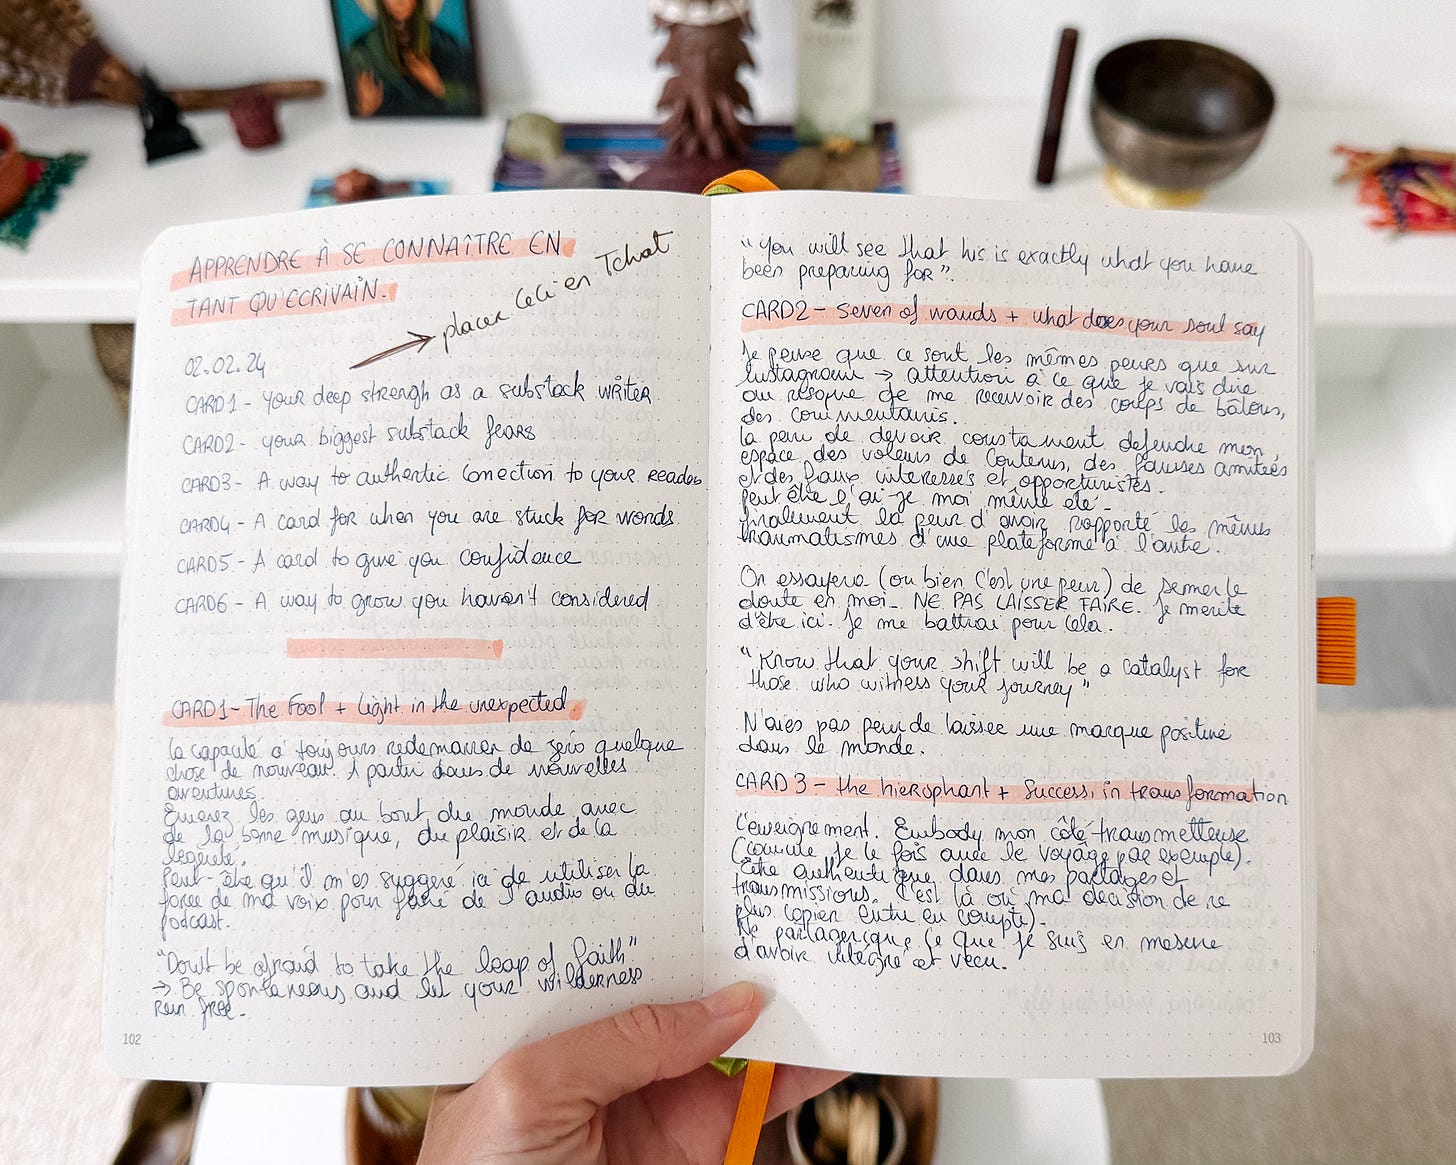 APPRENDRE À SE CONNAÎTRE EN
TANT QU'ECRIVAIN.
→ placer Ceci en Tchat
02.02.24
CARD1 - your deep strengh as a substack writer
CARD2 - your biggest substack fears
CARD3 - A way to authentic Conection to your reader
CARD4 - A card for when you are stuck for words
CARD5 - A card to give you confidence
CARD6 - A way to grow you haven't considered
CARD1 - The Fool + Light in the unexpected
la capacité à toujours redemarrer de zéro quelque
chose de nouveau. A partir dans de nouvelles
aventures.
les gens au bout du monde avec
de la bonne musique, du plaisir et de la
légereté.
Peut-être qu'il m'es suggeré ici de utiliser la
force de ma voix pour faire de l'audio ou du
podcast.
"Dont be afraid to take the leap of faith"
→ Be spontaneous and let your wilderness
run free.
102
"You will see that his is exactly what you have
been preparing for".
CARD2 - Seven of wands + what does your soul say
Je pense que ce sont les mêmes peurs que sur
Instagram → attention à ce que je vais dire
ou risque de me recevoir des coups de bâtons,
des commentaires.
la peur de devoir constament defendre mon
espace des voleurs de Contenus, des fausses amitiés
et des faux interessés et opportunistes.
Peut être l'ai-je moi même été.
finalement la peur d'avoir rapporté les mêmes
traumatismes d'une plateforme à l'autre.
On essayera (ou bien c'est une peur) de semer le
doute en moi. NE PAS LAISSER FAIRE. Je merite
d'être ici. Je me battrai pour cela.
"Know that your shift will be a catalyst for
those who witness your journey"
N'aies pas peur de laisser une marque positive
dans le monde.
CARD 3 - the hierophant + Success in transformation
L'enseignement. Embody mon côté transmetteuse
(comme je le fois avec le voyage par exemple).
Être authentique dans mes partages et
transmissions. C'est là où ma décision de ne
plus copier entre en compte).
Ne partager que ce que je suis en mesure
d'avoir intégré et vecu.
103